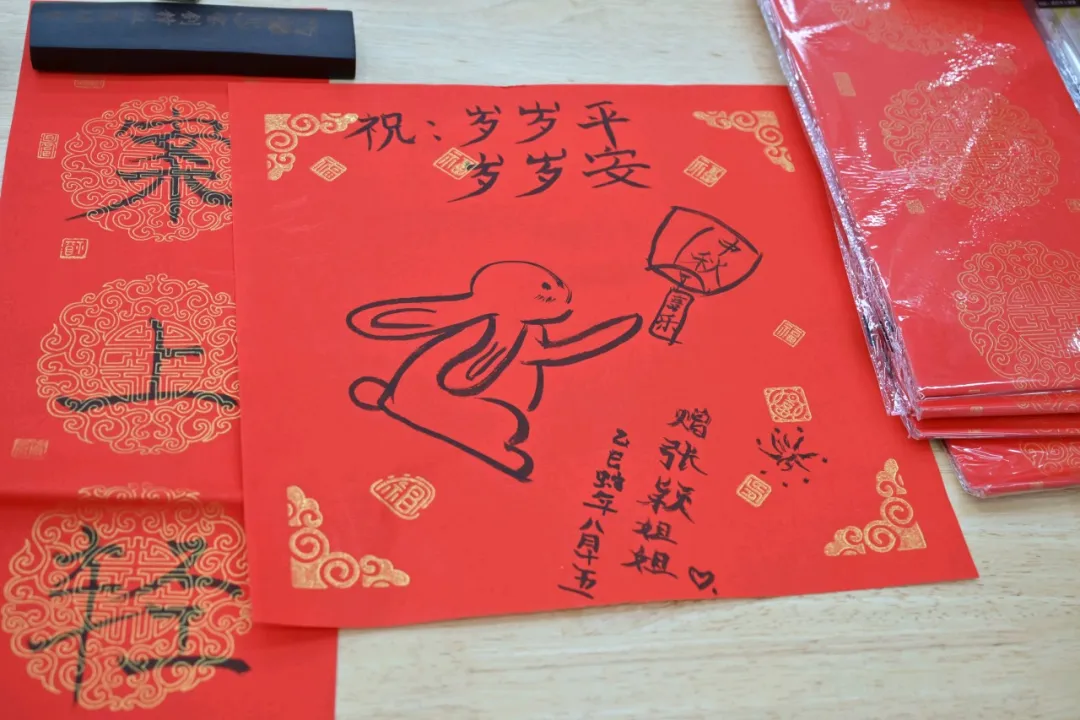 祝：岁岁平
岁岁安
中秋
赠张颖姐姐♡
乙巳蛇年八月十五
上
往
福
福
福
福
福